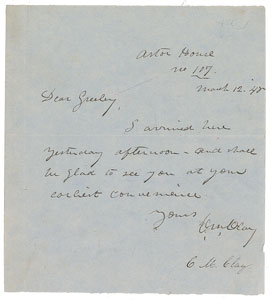 Astor House
No 107.
March 12. 48
Dear Greeley,
I arrived here
yesterday afternoon - and shall
be glad to see you at your
earliest convenience
Yours
C. M. Clay
C M Clay